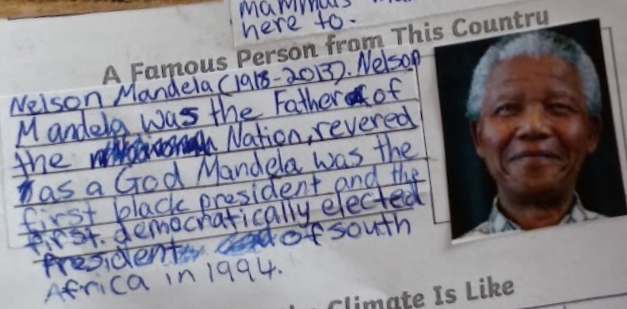 mammals
here to.
A Famous Person from This Country
Nelson Mandela (1918-2013). Nelson
Mandela was the Father of
the Nation, revered
as a God Mandela was the
first black president and the
first democratically elected
President of south
Africa in 1994.
Climate Is Like